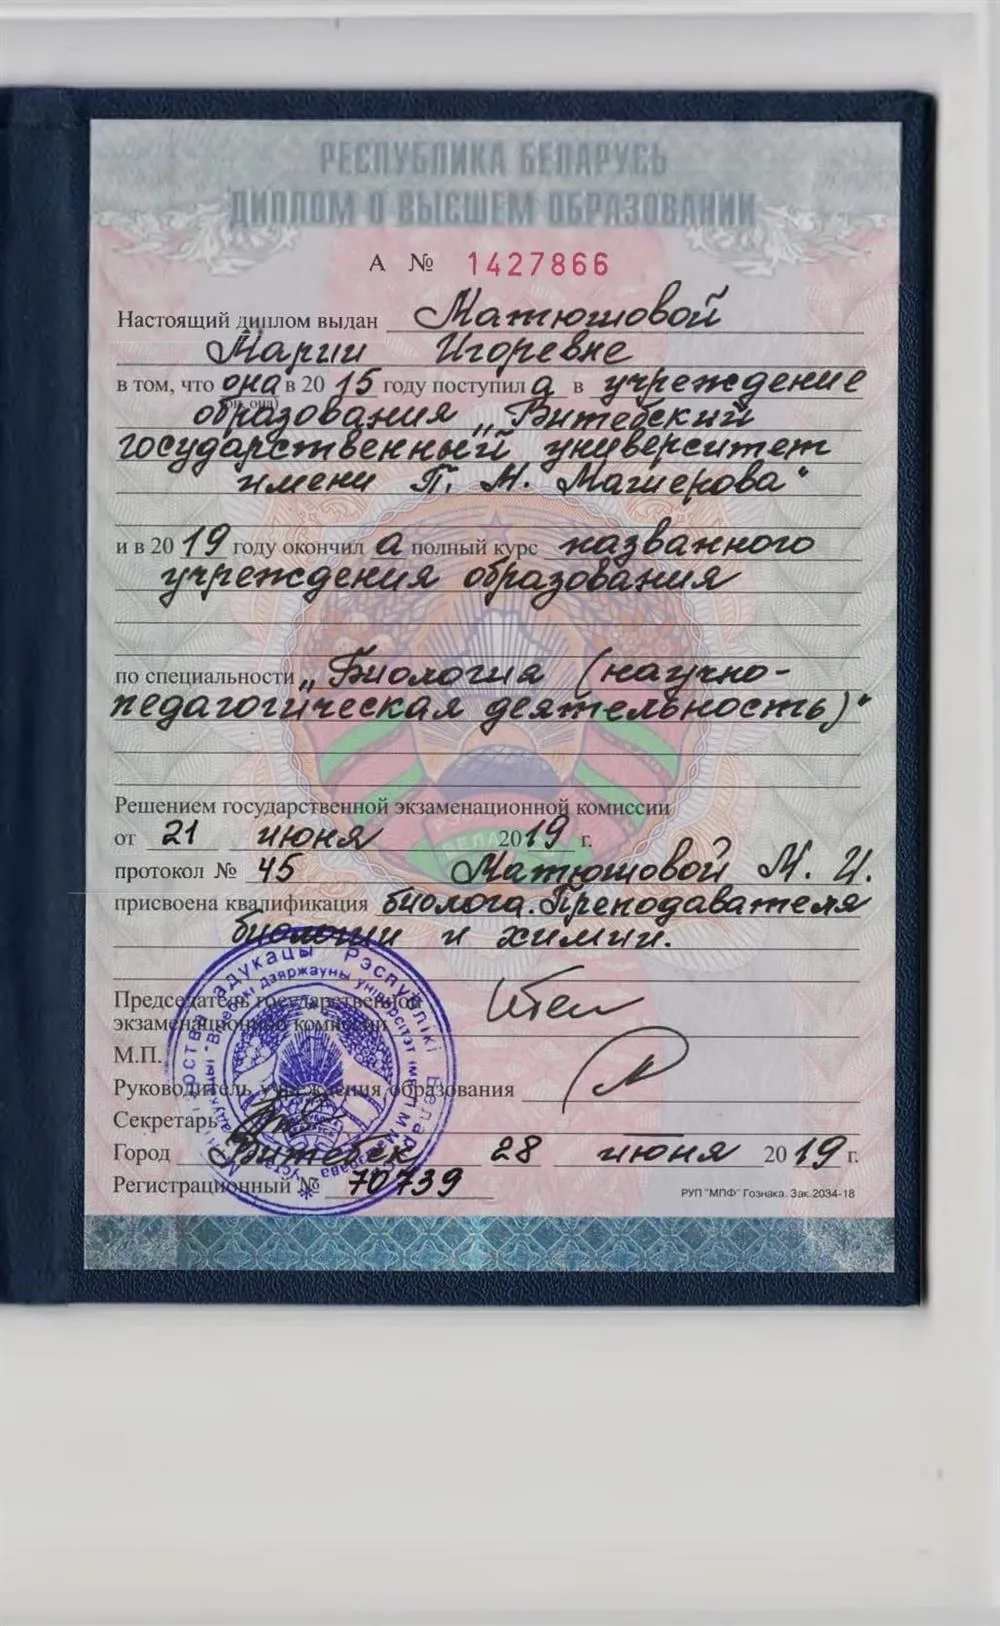 РЕСПУБЛИКА БЕЛАРУСЬ
ДИПЛОМ О ВЫСШЕМ ОБРАЗОВАНИИ
А № 1427866
Настоящий диплом выдан Матюшовой
Марии Игоревне
в том, что она в 2015 году поступила в учреждение
(он, она)
образования „Витебский
государственный университет
имени П. М. Машерова"
и в 2019 году окончила полный курс названного
учреждения образования
по специальности „Биология (научно-
педагогическая деятельность)"
Решением государственной экзаменационной комиссии
от 21 июня 2019 г.
протокол № 45 Матюшовой М. И.
присвоена квалификация биолога. Преподавателя
биологии и химии.
Председатель государственной
экзаменационной комиссии
М.П.
Руководитель учреждения образования
Секретарь
Город Витебск 28 июня 2019 г.
Регистрационный № 70739
РУП "МПФ" Гознака. Зак.2034-18
адукацыі Рэспублікі Беларусь
"Віцебскі дзяржаўны ўніверсітэт імя